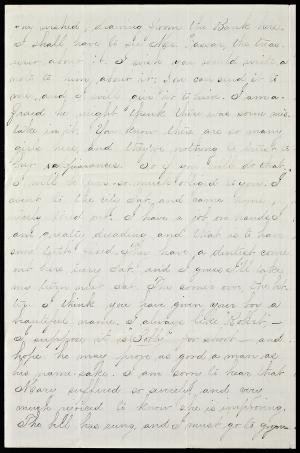 my washed, drawing from the Bank here.
I shall have to see Agt. the treas-
urer about it. I wish you would write a
note to him, about it; You can send it to
me, and I will give it to him. I am a-
fraid he might think there was some mis-
take in it. You know there are so many
girls here, and they've nothing to show
their So if you will do that,
I will be ever so much obliged to you. I
went to the city Sat. and came home,
nicely tired out. I have a job on hand I
am greatly dreading and that is to have
some teeth filled. They have a dentist come
out here every Sat. and I guess I'll take
my turn next Sat. This comes over
I think you have given your boy a
beautiful name. I always like "Robert" -
I suppose it is "Bob" for short - and
hope he may prove as good a man as
his name sake. I am sorry to hear that
Mary suffered so severely and very
much rejoiced to know she is improving.
The bell has rung, and I must go to gym